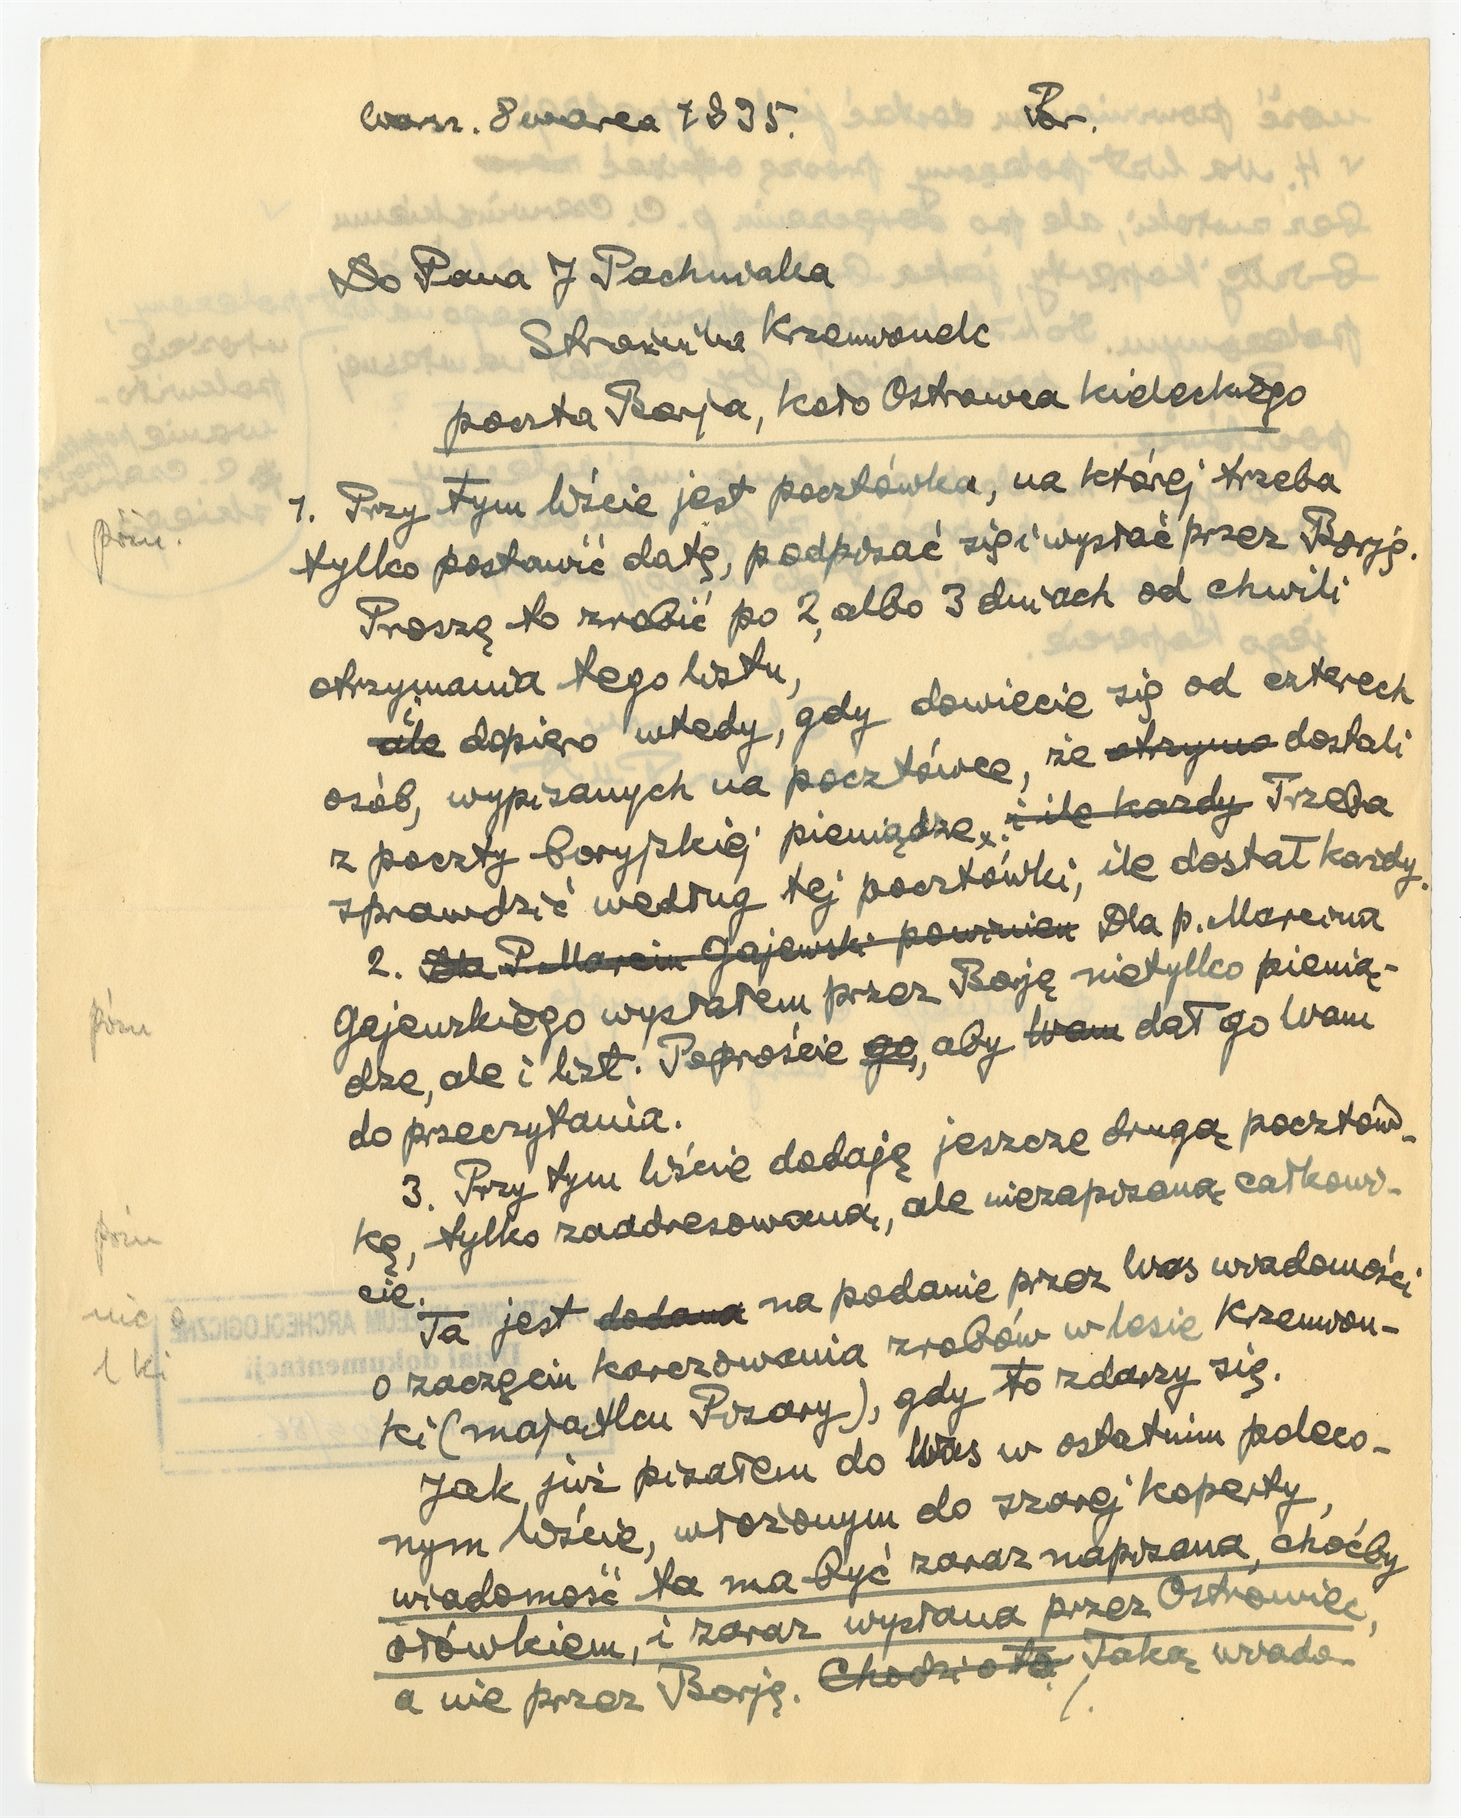 Warsz. 8 marca 1935. Bor.
Do Pana J Pachniaka
Strażnika Krzemionek
poczta Borja, koło Ostrowca Kieleckiego
1. Przy tym liście jest pocztówka, na której trzeba
tylko postawić datę, podpisać się i wysłać przez Borję.
Proszę to zrobić po 2, albo 3 dniach od chwili
otrzymania tego listu,
ale i dopiero wtedy, gdy dowiecie się od czterech
osób, wypisanych na pocztówce, że otrzyma dostali
z poczty boryjskiej pieniądze. i ile każdy Trzeba
sprawdzić według tej pocztówki, ile dostał każdy.
2. Dla P. Marcin Gajewski powinien Dla p. Marcina
Gajewskiego wysłałem przez Borję nietylko pienią-
dze, ale i list. Poproście go, aby Wam dał go Wam
do przeczytania.
3. Przy tym liście dodaję jeszcze drugą pocztów-
kę, tylko zaadresowaną, ale niezapisaną całkowi-
cie.
Ta jest dodana na podanie przez Was wiadomości
o zaczęciu karczowania zrobów w lesie Krzemion-
ki (majątku Pisary), gdy to zdarzy się.
Jak już pisałem do Was w ostatnim poleco-
nym liście, włożonym do szarej koperty,
wiadomość ta ma być zaraz napisana, choćby
ołówkiem, i zaraz wysłana przez Ostrowiec,
a nie przez Borję. Chodzi o to Taką wiado-